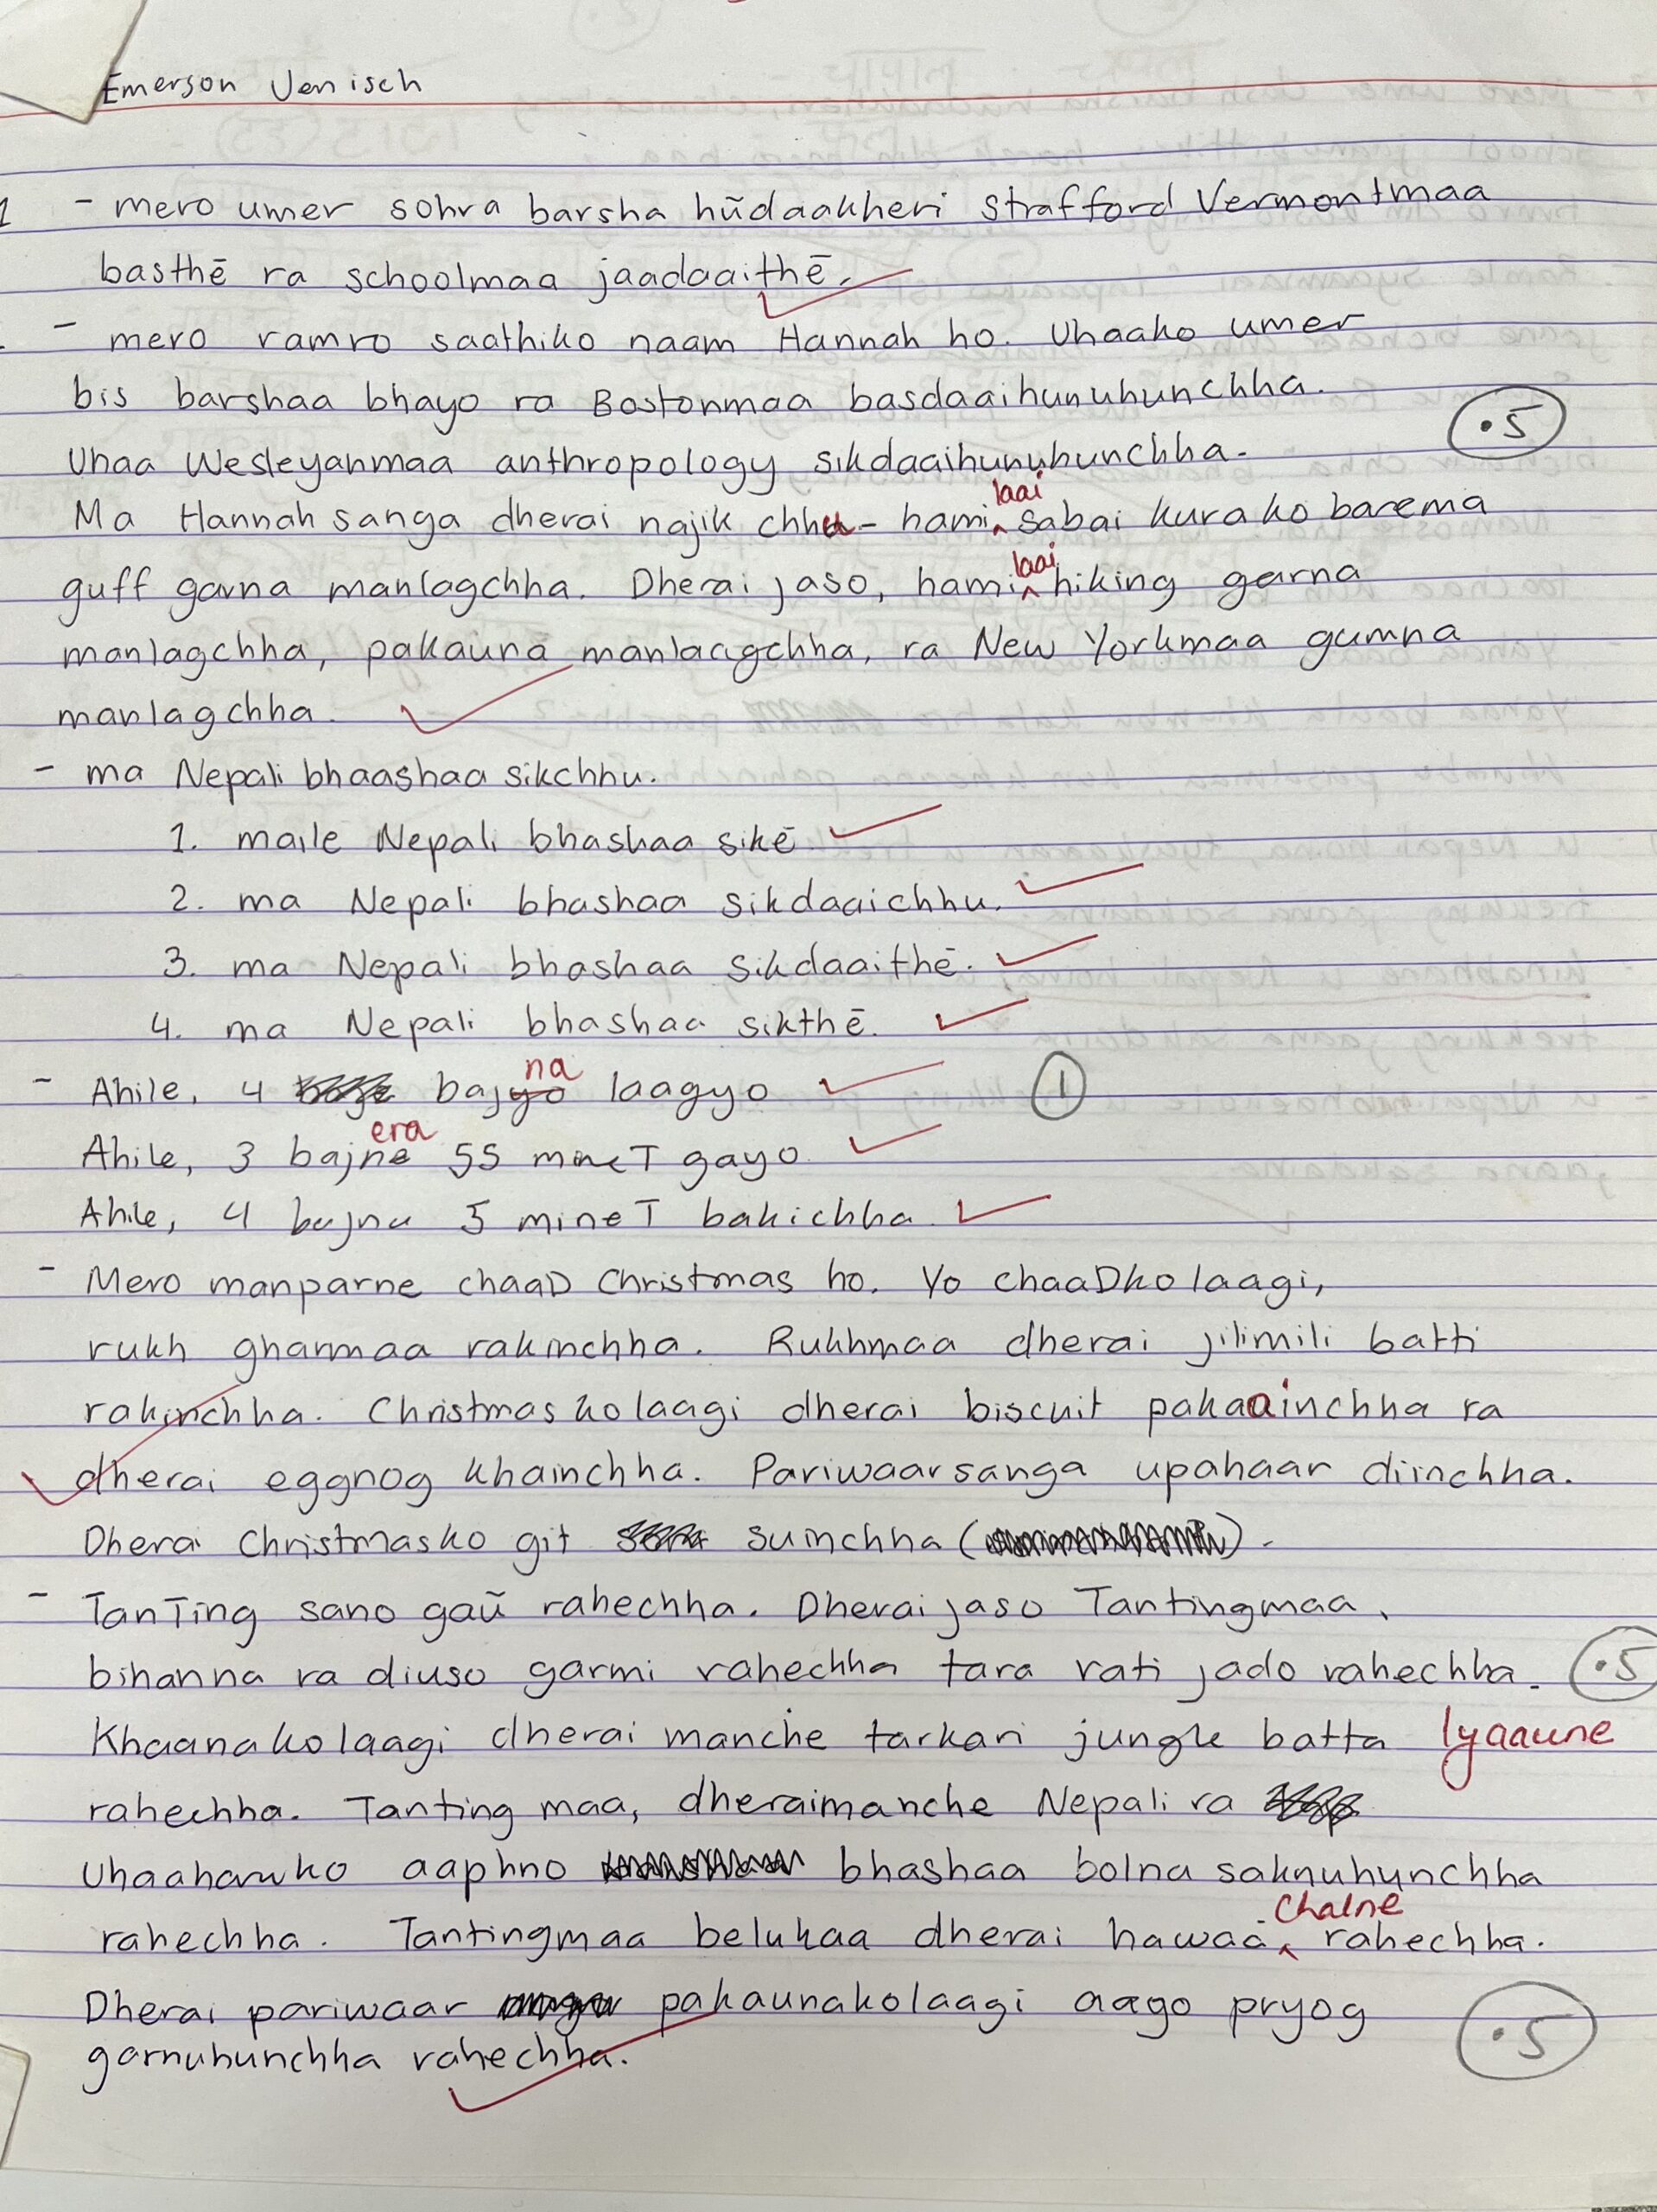 Emerson Jenisch
1 - mero umer sohra barsha hũdaakheri Strafford Vermontmaa
basthē ra schoolmaa jaadaaithē.
- mero ramro saathiko naam Hannah ho. Uhaako umer
bis barshaa bhayo ra Bostonmaa basdaaihunuhunchha.
.5
Uhaa Wesleyanmaa anthropology sikdaaihunuhunchha.
laai
Ma Hannah sanga dherai najik chhu - hami sabai kurako barema
laai
guff garna manlagchha. Dherai jaso, hami hiking garna
manlagchha, pakauna manlaagchha, ra New Yorkmaa gumna
manlagchha.
- ma Nepali bhaashaa sikchhu.
1. maile Nepali bhashaa sikē
2. ma Nepali bhashaa sikdaaichhu.
3. ma Nepali bhashaa sikdaaithē.
4. ma Nepali bhashaa sikthē.
na
- Ahile, 4 bajyo laagyo
1
era
Ahile, 3 bajne 55 mineT gayo
Ahile, 4 bajna 5 mineT bakichha.
- Mero manparne chaaD Christmas ho. Yo chaaDko laagi,
rukh gharmaa rakinchha. Rukhmaa dherai jilimili batti
rakinchha. Christmas ko laagi dherai biscuit pakaainchha ra
dherai eggnog khainchha. Pariwaarsanga upahaar diinchha.
Dherai Christmasko git suinchha
- TanTing sano gaũ rahechha. Dherai jaso Tantingmaa,
bihanna ra diuso garmi rahechha tara rati jado rahechha.
.5
Khaanako laagi dherai manche tarkari jungle batta lyaaune
rahechha. Tanting maa, dheraimanche Nepali ra
Uhaaharuko aaphno bhashaa bolna saknuhunchha
chalne
rahechha. Tantingmaa belukaa dherai hawaa rahechha.
Dherai pariwaar pakaunakolaagi aago pryog
.5
garnuhunchha rahechha.